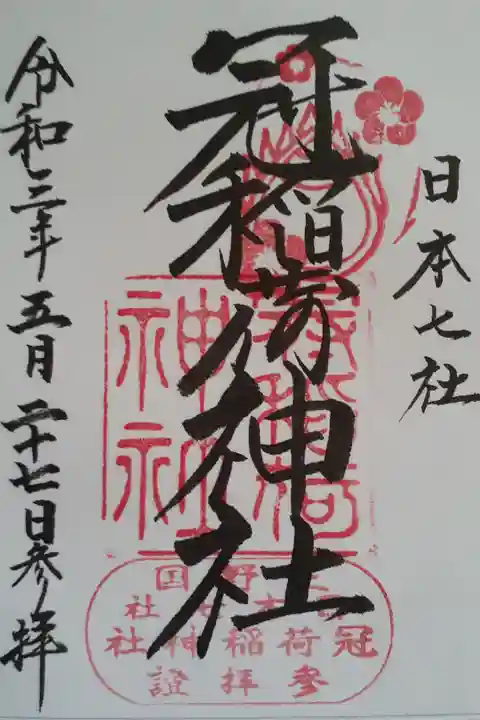 日本七社
冠稲荷神社
令和三年五月二十七日参拝
野国
社
冠稲荷神社
参拝證